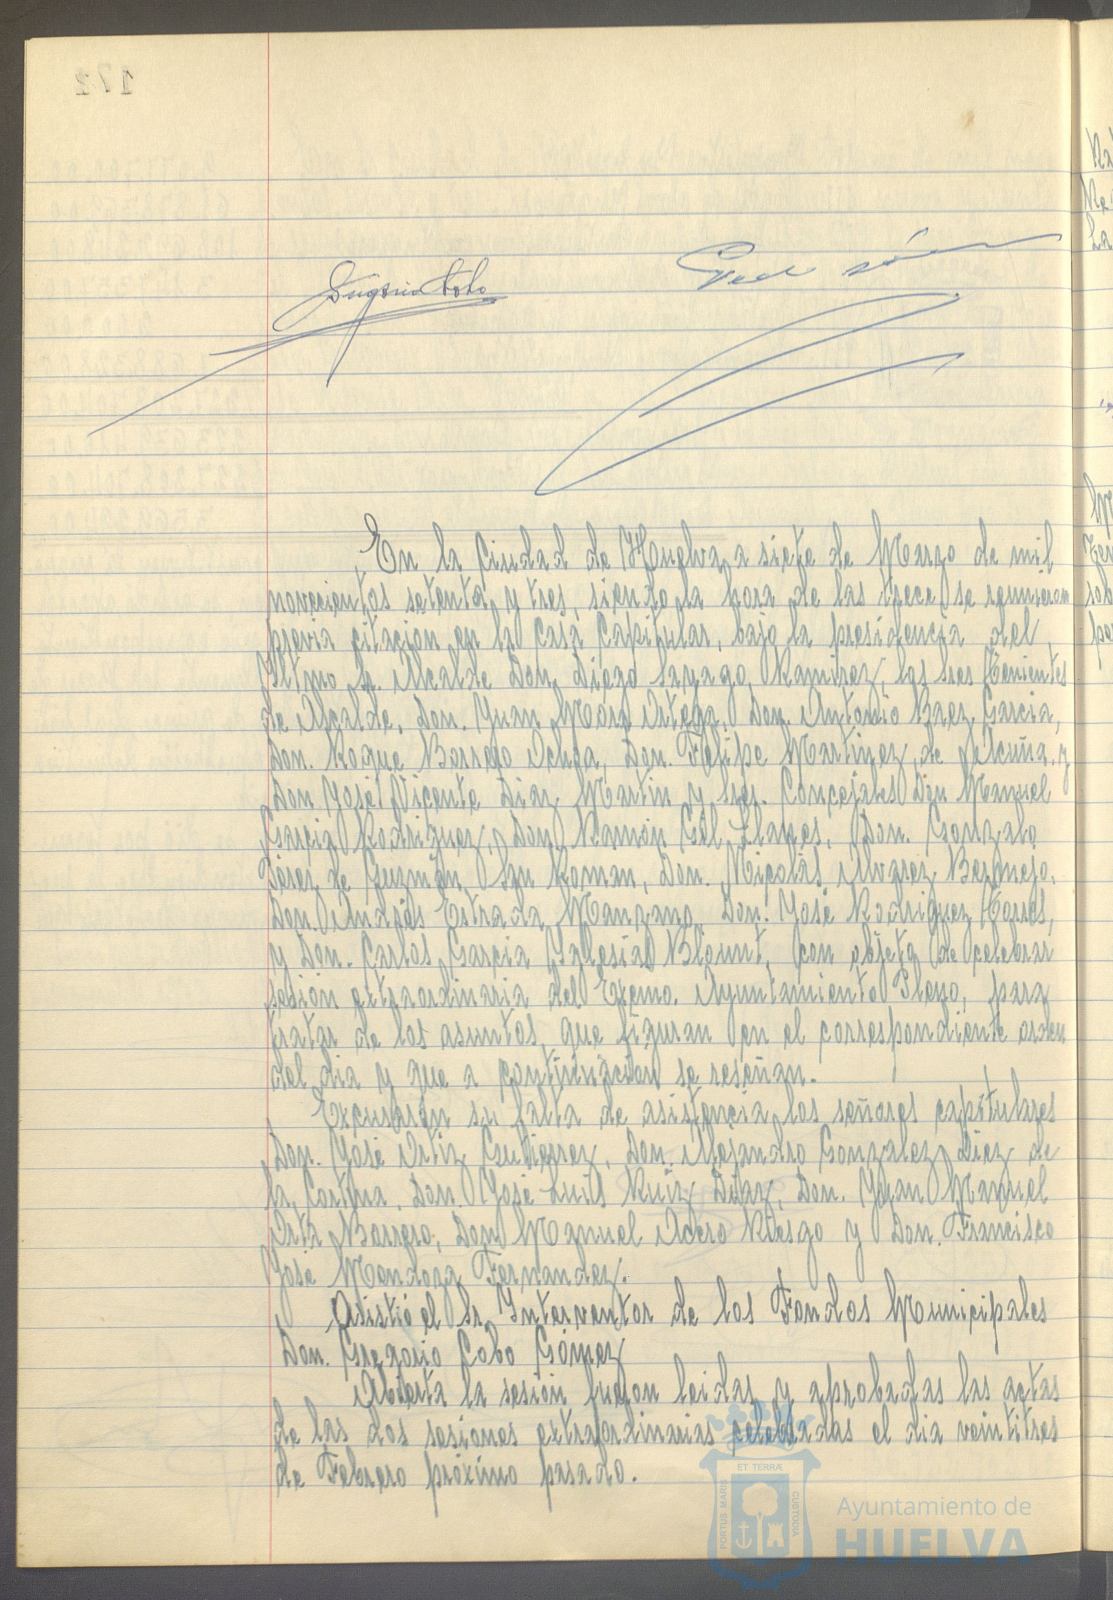 171
Eugenio Cobo
En la Ciudad de Huelva a siete de Marzo de mil
novecientos setenta y tres, siendo la hora de las trece se reunieron
previa citacion en la Casa Capitular, bajo la presidencia del
Iltmo Sr. Alcalde Don Diego Sayago Ramirez, los sres Tenientes
de Alcalde, Don. Juan Mora Ortega, Don. Antonio Baez Garcia,
Don. Roque Barrero Ochoa, Don. Felipe Martinez de Acuña, y
Don José Vicente Diaz Martin y Sres. Concejales Don Manuel
Garcia Rodriguez, Don Ramón Gil Llanes, Don. Gonzalo
Pérez de Guzmán San Roman, Don. Nicolás Alvarez Bermejo,
Don. Andrés Estrada Manzano, Don. José Rodriguez Torres,
y Don. Carlos Garcia Yglesias Blount, con objeto de celebrar
sesión extraordinaria del Excmo. Ayuntamiento Pleno, para
tratar de los asuntos, que figuran en el correspondiente orden
del dia y que a continuacion se reseñan.
Excusaron su falta de asistencia los señores capitulares
Don. José Ortiz Gutierrez, Don. Alejandro Gonzalez Diez de
la Cortina, Don. José Luis Ruiz Diaz, Don. Juan Manuel
Orta Barrero, Don Manuel Otero Riesgo y Don. Francisco
José Mendoza Fernandez.
Asistió el Sr. Interventor de los Fondos Municipales
Don. Gregorio Cobo Gómez
Abierta la sesión fueron leidas y aprobadas las actas
de las dos sesiones extraordinarias celebradas el dia veintitres
de Febrero próximo pasado.
ET TERRÆ
PORTUS MARIS
CUSTODIA
Ayuntamiento de
HUELVA